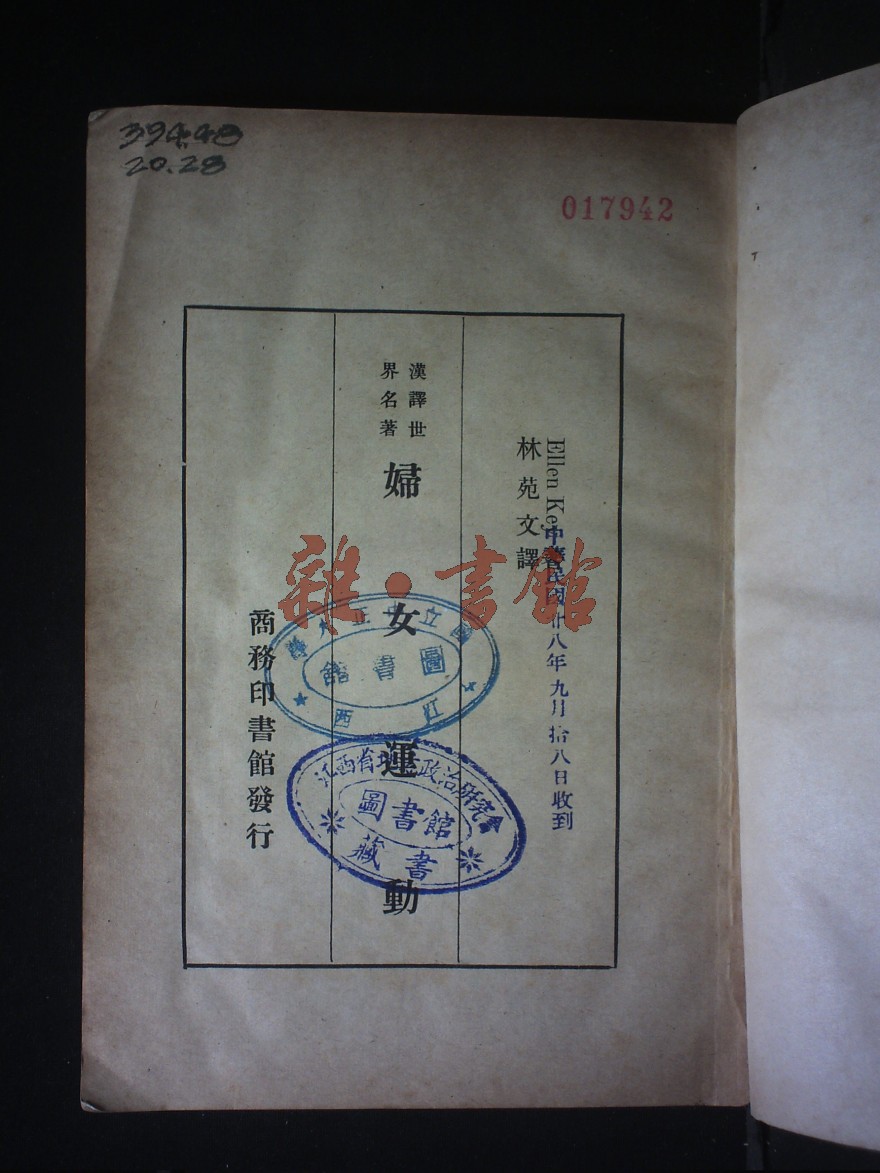 394.48
20.28
017942
Ellen Key
林苑文譯
中華民國廿八年九月拾八日收到
漢譯世
界名著
婦女運動
商務印書館發行
國立中正大學
圖書館
江西
江西省地方政治研究會
圖書館
藏書
雜·書館